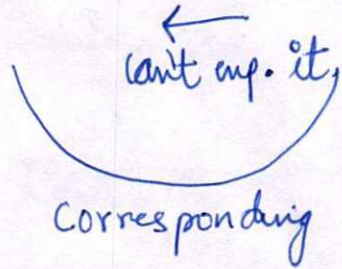 can't exp. it,
corresponding